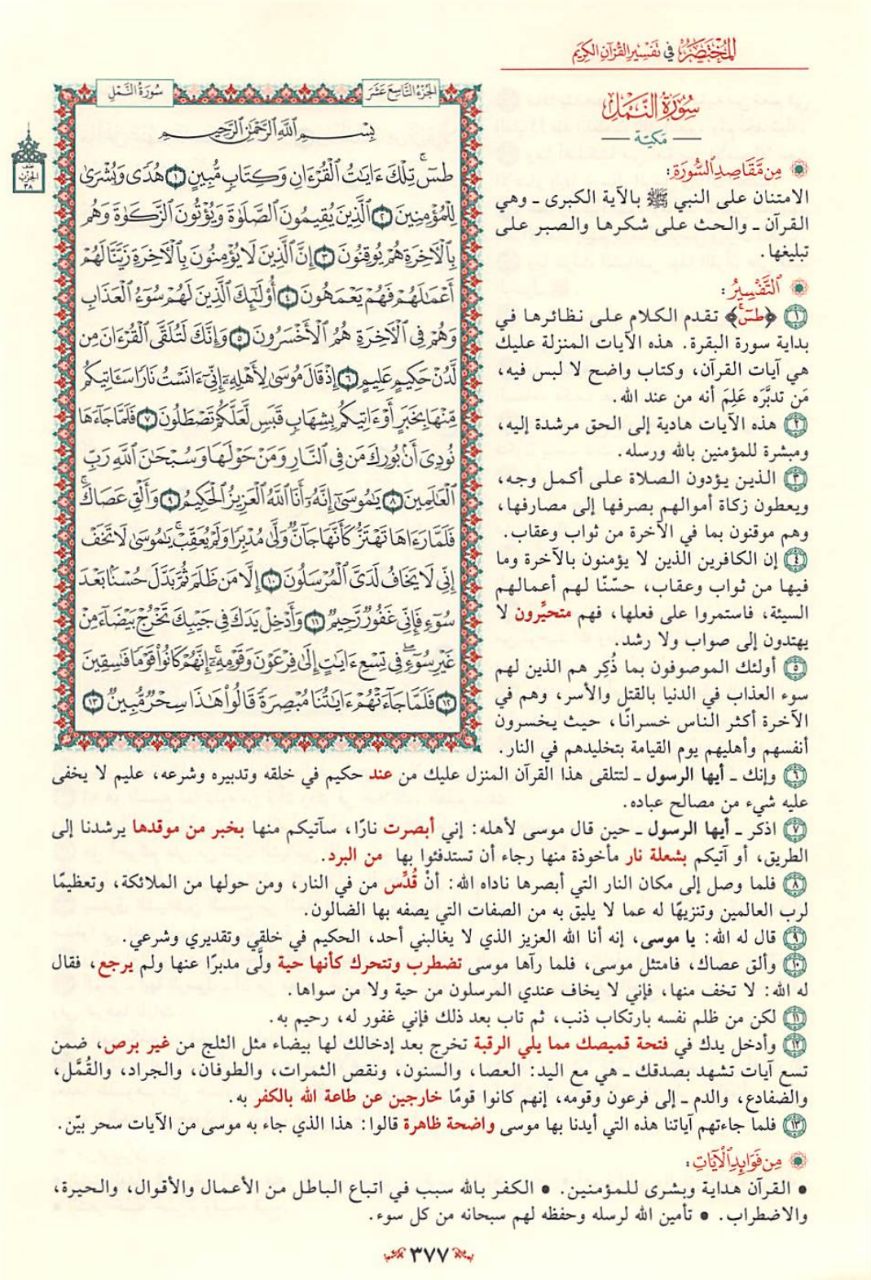 المختصر في تفسير القرآن الكريم
سورة النمل
مكية
من مقاصد السورة:
الامتنان على النبي ﷺ بالآية الكبرى ـ وهي
القرآن ـ والحث على شكرها والصبر على
تبليغها.
التفسير:
١ ﴿طسٓ﴾ تقدم الكلام على نظائرها في
بداية سورة البقرة. هذه الآيات المنزلة عليك
هي آيات القرآن، وكتاب واضح لا لبس فيه،
مَن تدبَّرَه عَلِمَ أنه من عند الله.
٢ هذه الآيات هادية إلى الحق مرشدة إليه،
ومبشرة للمؤمنين بالله ورسله.
٣ الذين يؤدون الصلاة على أكمل وجه،
ويعطون زكاة أموالهم بصرفها إلى مصارفها،
وهم موقنون بما في الآخرة من ثواب وعقاب.
٤ إن الكافرين الذين لا يؤمنون بالآخرة وما
فيها من ثواب وعقاب، حسّنّا لهم أعمالهم
السيئة، فاستمروا على فعلها، فهم متحيِّرون لا
يهتدون إلى صواب ولا رشد.
٥ أولئك الموصوفون بما ذُكِر هم الذين لهم
سوء العذاب في الدنيا بالقتل والأسر، وهم في
الآخرة أكثر الناس خسرانًا، حيث يخسرون
أنفسهم وأهليهم يوم القيامة بتخليدهم في النار.
الجزء التاسع عشر
سورة النمل
بِسْمِ ٱللَّهِ ٱلرَّحْمَٰنِ ٱلرَّحِيمِ
طسٓۚ تِلْكَ ءَايَٰتُ ٱلْقُرْءَانِ وَكِتَابٍ مُّبِينٍ ١ هُدًى وَبُشْرَىٰ
لِلْمُؤْمِنِينَ ٢ ٱلَّذِينَ يُقِيمُونَ ٱلصَّلَوٰةَ وَيُؤْتُونَ ٱلزَّكَوٰةَ وَهُم
بِٱلْءَاخِرَةِ هُمْ يُوقِنُونَ ٣ إِنَّ ٱلَّذِينَ لَا يُؤْمِنُونَ بِٱلْءَاخِرَةِ زَيَّنَّا لَهُمْ
أَعْمَٰلَهُمْ فَهُمْ يَعْمَهُونَ ٤ أُو۟لَٰٓئِكَ ٱلَّذِينَ لَهُمْ سُوٓءُ ٱلْعَذَابِ
وَهُمْ فِى ٱلْءَاخِرَةِ هُمُ ٱلْأَخْسَرُونَ ٥ وَإِنَّكَ لَتُلَقَّى ٱلْقُرْءَانَ مِن
لَّدُنْ حَكِيمٍ عَلِيمٍ ٦ إِذْ قَالَ مُوسَىٰ لِأَهْلِهِۦٓ إِنِّىٓ ءَانَسْتُ نَارًا سَـَٔاتِيكُم
مِّنْهَا بِخَبَرٍ أَوْ ءَاتِيكُم بِشِهَابٍ قَبَسٍ لَّعَلَّكُمْ تَصْطَلُونَ ٧ فَلَمَّا جَآءَهَا
نُودِىَ أَنۢ بُورِكَ مَن فِى ٱلنَّارِ وَمَنْ حَوْلَهَا وَسُبْحَٰنَ ٱللَّهِ رَبِّ
ٱلْعَٰلَمِينَ ٨ يَٰمُوسَىٰٓ إِنَّهُۥٓ أَنَا ٱللَّهُ ٱلْعَزِيزُ ٱلْحَكِيمُ ٩ وَأَلْقِ عَصَاكَۚ
فَلَمَّا رَءَاهَا تَهْتَزُّ كَأَنَّهَا جَآنٌّ وَلَّىٰ مُدْبِرًا وَلَمْ يُعَقِّبْۚ يَٰمُوسَىٰ لَا تَخَفْ
إِنِّى لَا يَخَافُ لَدَىَّ ٱلْمُرْسَلُونَ ١٠ إِلَّا مَن ظَلَمَ ثُمَّ بَدَّلَ حُسْنًۢا بَعْدَ
سُوٓءٍ فَإِنِّى غَفُورٌ رَّحِيمٌ ١١ وَأَدْخِلْ يَدَكَ فِى جَيْبِكَ تَخْرُجْ بَيْضَآءَ مِنْ
غَيْرِ سُوٓءٍۖ فِى تِسْعِ ءَايَٰتٍ إِلَىٰ فِرْعَوْنَ وَقَوْمِهِۦٓۚ إِنَّهُمْ كَانُوا۟ قَوْمًا فَٰسِقِينَ
١٢ فَلَمَّا جَآءَتْهُمْ ءَايَٰتُنَا مُبْصِرَةً قَالُوا۟ هَٰذَا سِحْرٌ مُّبِينٌ ١٣
٦ وإنك ـ أيها الرسول ـ لتتلقى هذا القرآن المنزل عليك من عند حكيم في خلقه وتدبيره وشرعه، عليم لا يخفى
عليه شيء من مصالح عباده.
٧ اذكر ـ أيها الرسول ـ حين قال موسى لأهله: إني أبصرت نارًا، سآتيكم منها بخبر من موقدها يرشدنا إلى
الطريق، أو آتيكم بشعلة نار مأخوذة منها رجاء أن تستدفئوا بها من البرد.
٨ فلما وصل إلى مكان النار التي أبصرها ناداه الله: أنْ قُدِّس من في النار، ومن حولها من الملائكة، وتعظيمًا
لرب العالمين وتنزيهًا له عما لا يليق به من الصفات التي يصفه بها الضالون.
٩ قال له الله: يا موسى، إنه أنا الله العزيز الذي لا يغالبني أحد، الحكيم في خلقي وتقديري وشرعي.
١٠ وألق عصاك، فامتثل موسى، فلما رآها موسى تضطرب وتتحرك كأنها حية ولَّى مدبرًا عنها ولم يرجع، فقال
له الله: لا تخف منها، فإني لا يخاف عندي المرسلون من حية ولا من سواها.
١١ لكن من ظلم نفسه بارتكاب ذنب، ثم تاب بعد ذلك فإني غفور له، رحيم به.
١٢ وأدخل يدك في فتحة قميصك مما يلي الرقبة تخرج بعد إدخالك لها بيضاء مثل الثلج من غير برص، ضمن
تسع آيات تشهد بصدقك ـ هي مع اليد: العصا، والسنون، ونقص الثمرات، والطوفان، والجراد، والقُمَّل،
والضفادع، والدم ـ إلى فرعون وقومه، إنهم كانوا قومًا خارجين عن طاعة الله بالكفر به.
١٣ فلما جاءتهم آياتنا هذه التي أيدنا بها موسى واضحة ظاهرة قالوا: هذا الذي جاء به موسى من الآيات سحر بيّن.
من فوائد الآيات:
• القرآن هداية وبشرى للمؤمنين. • الكفر بالله سبب في اتباع الباطل من الأعمال والأقوال، والحيرة،
والاضطراب. • تأمين الله لرسله وحفظه لهم سبحانه من كل سوء.
٣٧٧